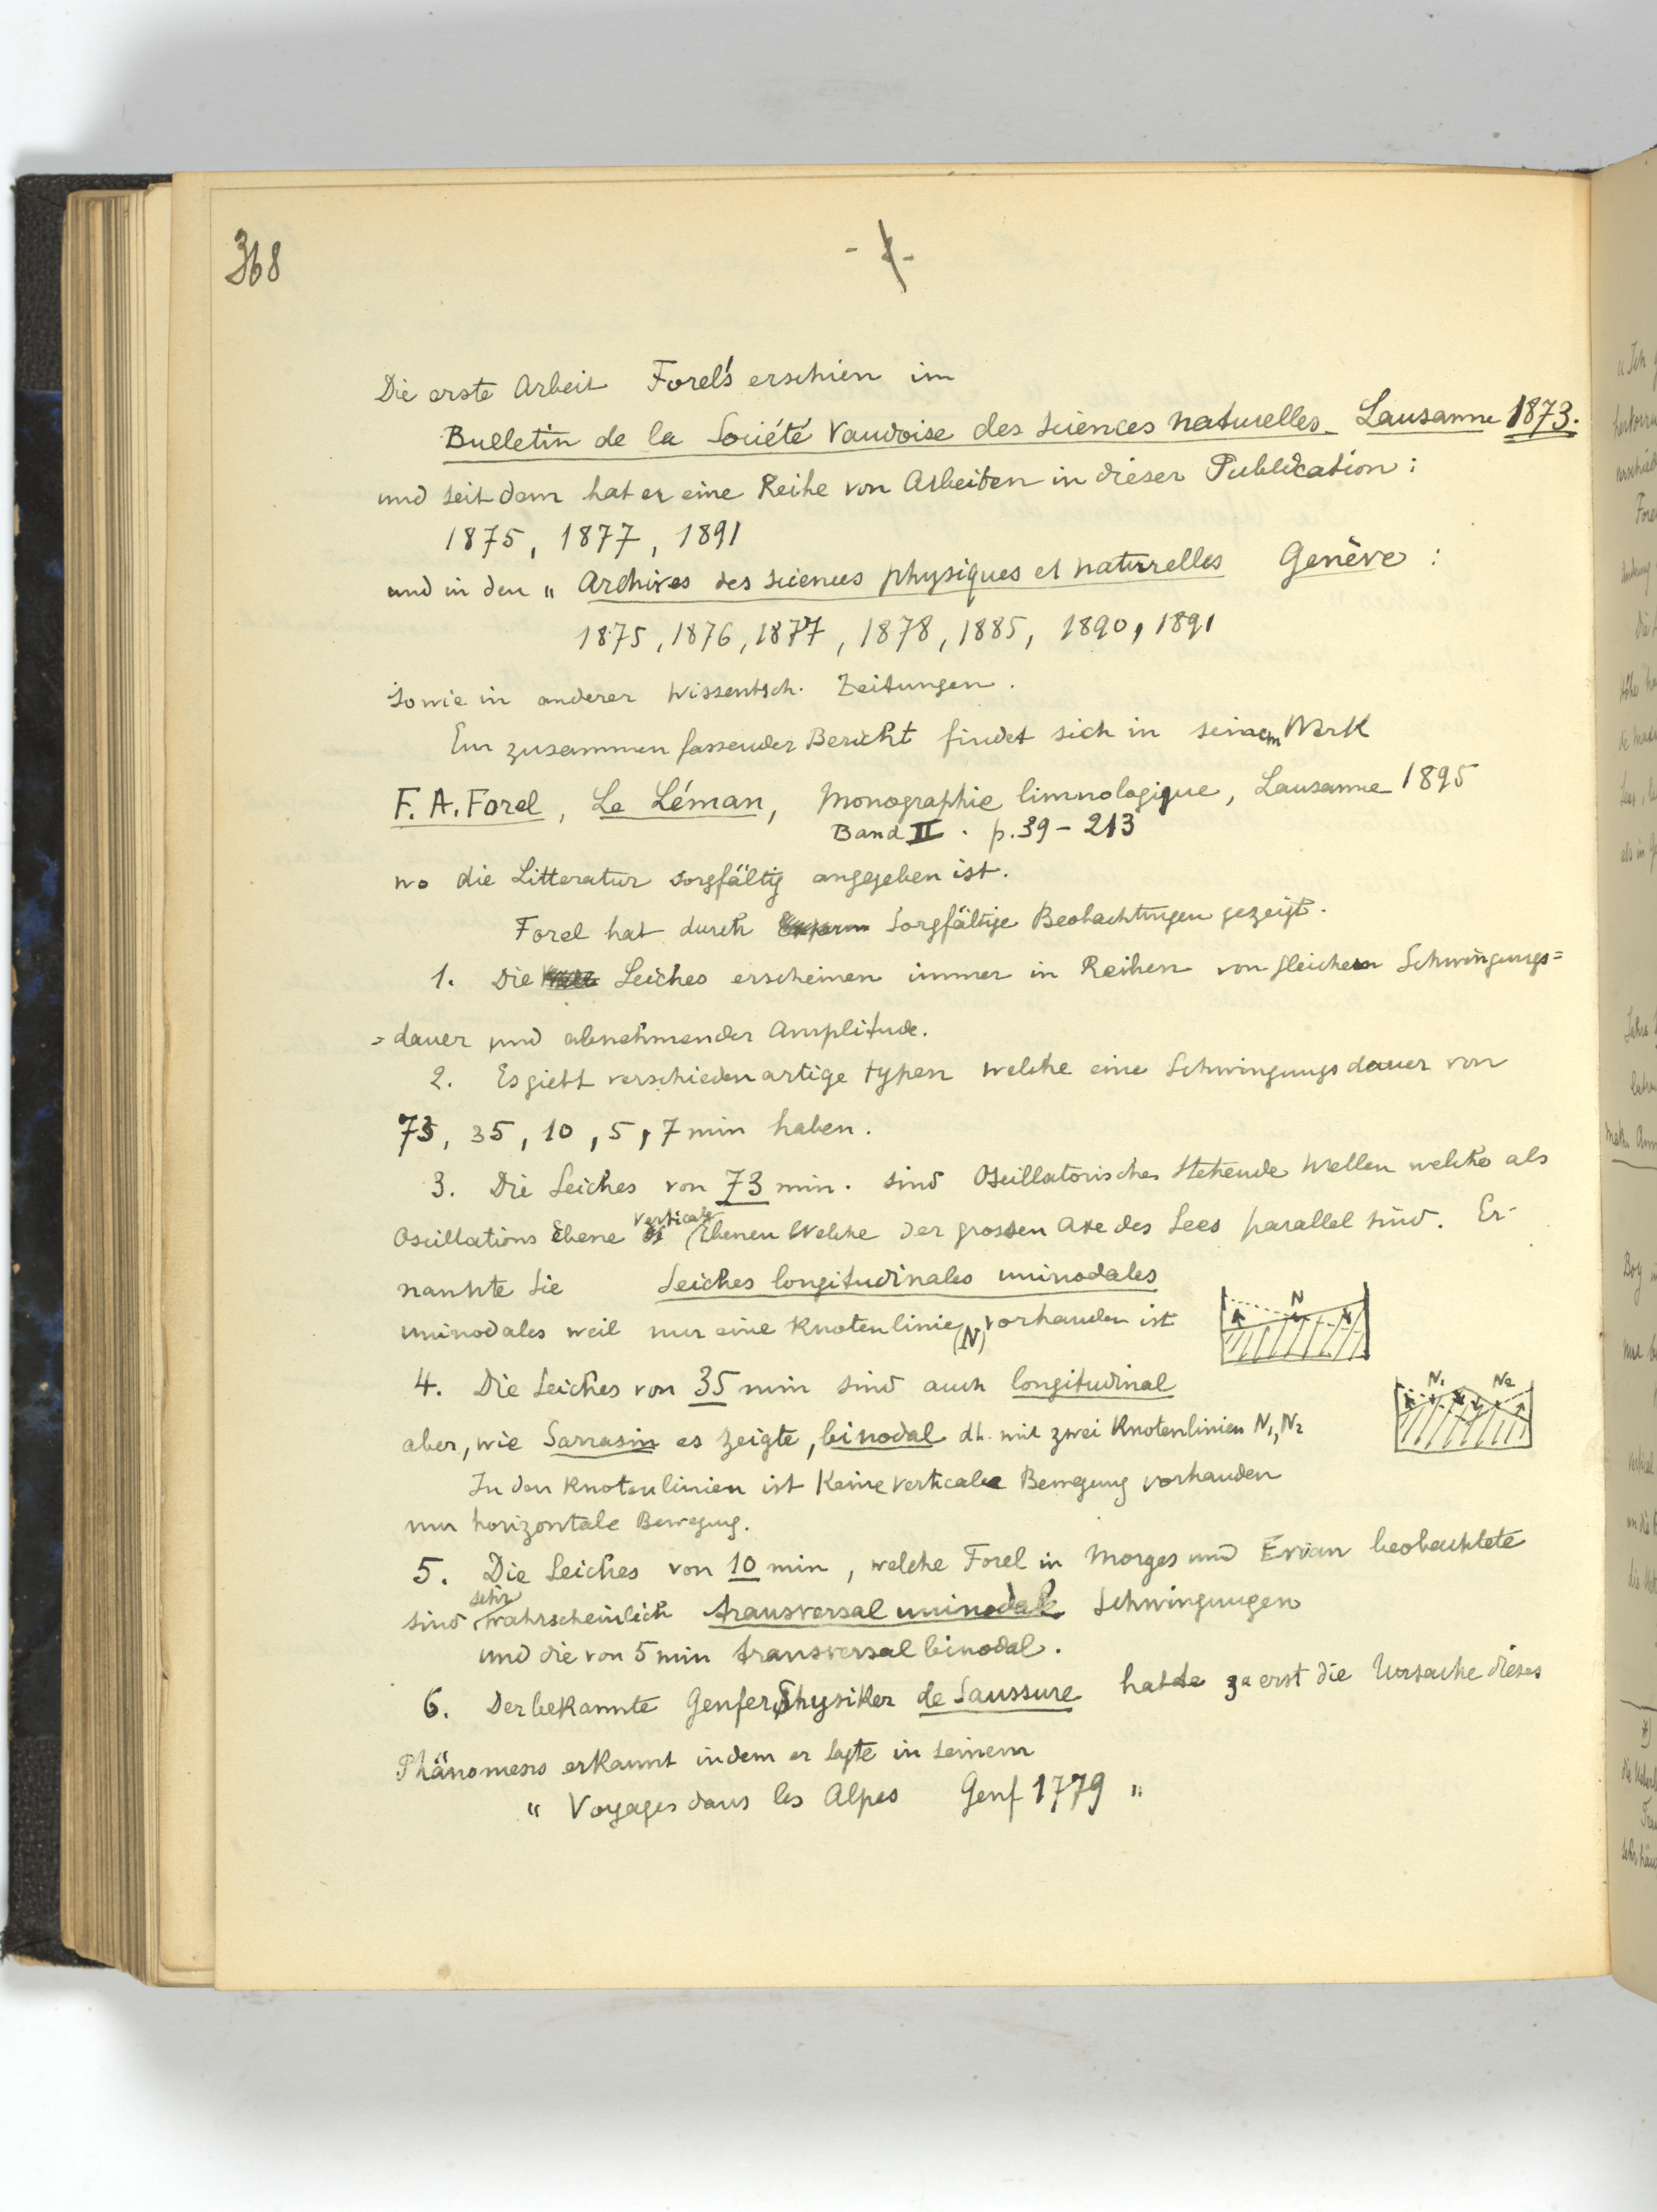 368
Die erste Arbeit Forel's erschien im
Bulletin de la Société Vaudoise des sciences naturelles Lausanne 1873.
und seit dem hat er eine Reihe von Arbeiten in dieser Publication :
1875, 1877, 1891
und in den " Archives des sciences physiques et naturelles Genève :
1875, 1876, 1877, 1878, 1885, 1890, 1891
sowie in anderer wissentsch. Zeitungen.
Ein zusammenfassender Bericht findet sich in seinem Werk
F. A. Forel, Le Léman, Monographie limnologique, Lausanne 1895
Band II. p. 39 - 213
wo die Litteratur sorgfältig angegeben ist.
Forel hat durch sorgfältige Beobachtungen gezeigt.
1. Die Seiches erscheinen immer in Reihen von gleichen Schwingungs=
=dauer und abnehmender Amplitude.
2. Es giebt verschiedenartige typen welche eine Schwingungsdauer von
73, 35, 10, 5, 7 min haben.
3. Die Seiches von 73 min. sind Oscillatorisches stehende Wellen welche als
Oscillations Ebene verticale Ebenen Welche der grossen Axe des Sees parallel sind. Er-
nannte sie Seiches longitudinales uninodales
uninodales weil nur eine Knotenlinie (N) vorhanden ist
N
4. Die Seiches von 35 min sind auch longitudinal
N1 N2
aber, wie Sarrasin es zeigte, binodal dh. mit zwei Knotenlinien N1, N2
In den Knotenlinien ist Keine verticale Bewegung vorhanden
nur horizontale Bewegung.
5. Die Seiches von 10 min, welche Forel in Morges und Evian beobachtete
sind sehr wahrscheinlich transversal uninodale Schwingungen
und die von 5 min transversal binodal.
6. Der bekannte Genfer Physiker de Saussure hatte zuerst die Ursache dieses
Phänomens erkannt indem er sagte in seinem
" Voyages dans les Alpes Genf 1779 "